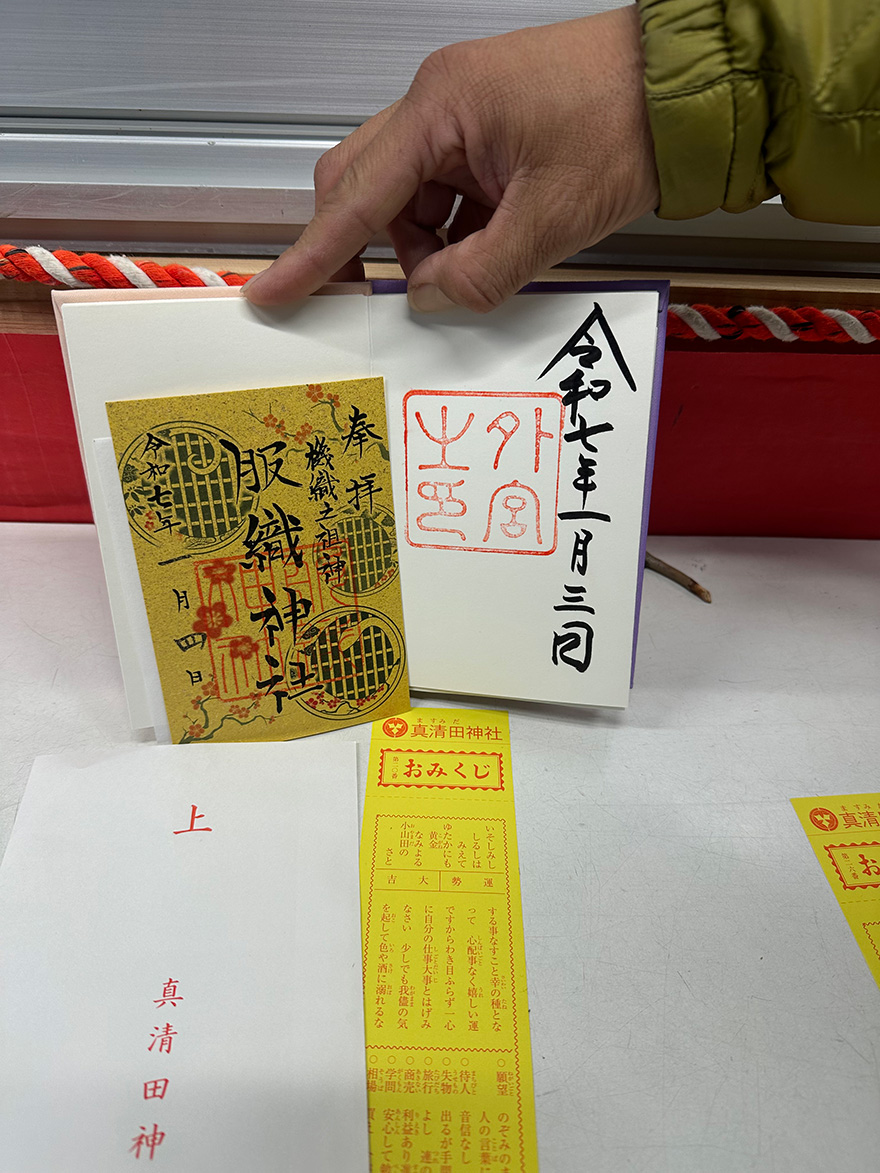 令和七年一月三日
外宮
之印
奉拝
機織之祖神
服織神社
令和七年
一月四日
上
真清田神
ますみだ
真清田神社
第二〇番
おみくじ
いそしみし
しるしは
みえて
ゆたかにも
黄金
なみよる
小山田の
さと
運勢
大吉
する事なすこと幸の種とな
って 心配事なく嬉しい運
ですからわき目ふらず一心
に自分の仕事大事とはげみ
なさい 少しでも我儘の気
を起して色や酒に溺れるな
○願望 のぞみのま
人の言葉に
○待人 音信なし
○失物 出るが手間
○旅行 よし 連の
○商売 利益あり
○学問 安心して
○相場
ますみ
真清
第二六番
お